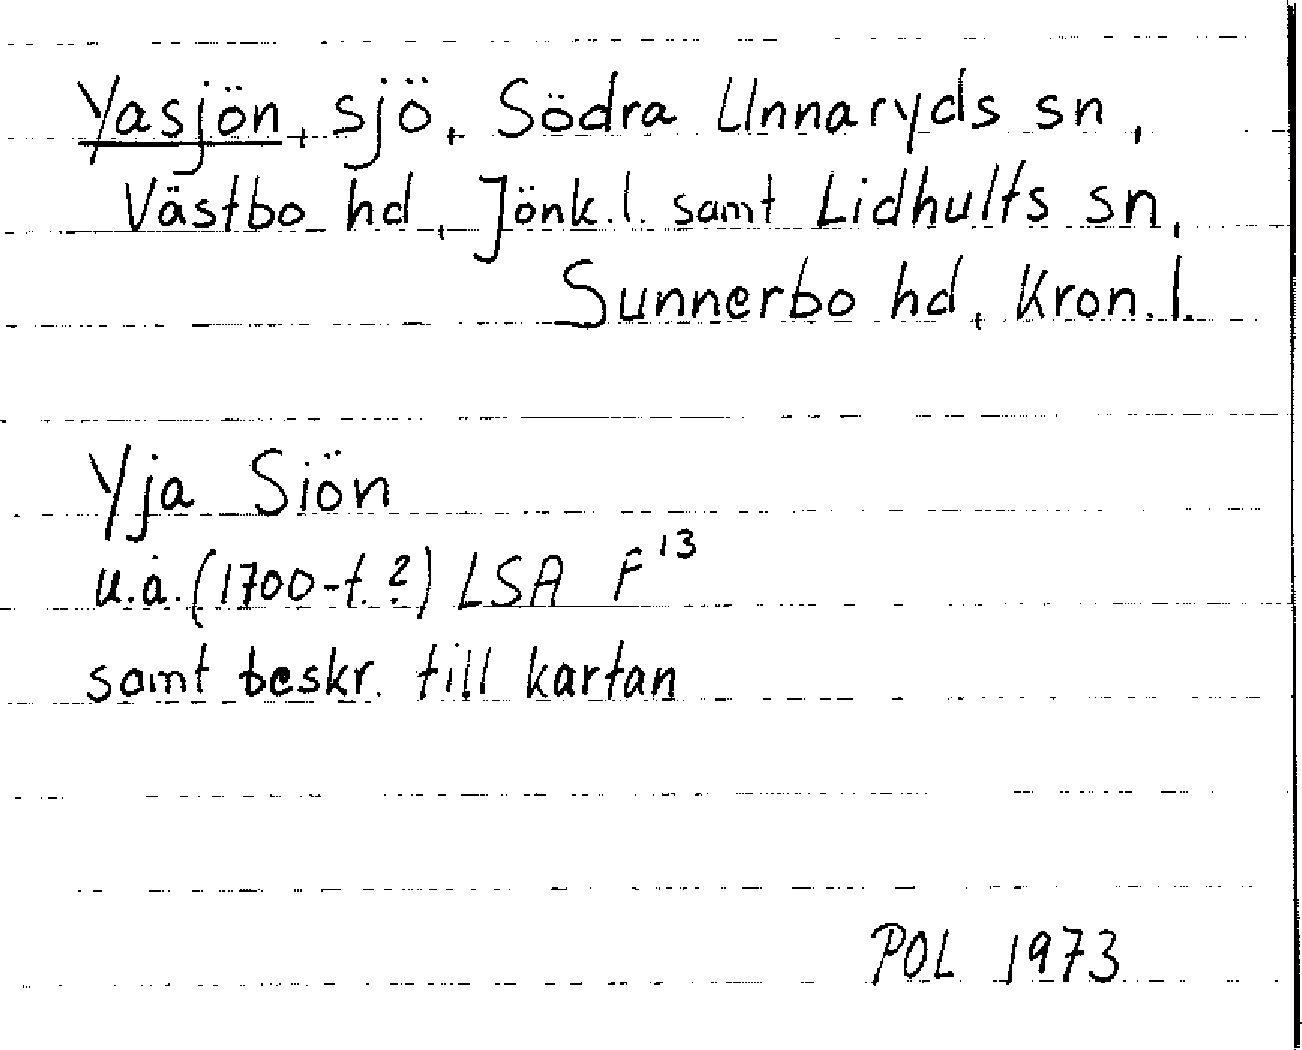 Yasjön, sjö, Södra Unnaryds sn,
Västbo hd, Jönk.l. samt Lidhults sn,
Sunnerbo hd, Kron.l.
Yja Siön
u.å. (1700-t.?) LSA F 13
samt beskr. till kartan
POL 1973